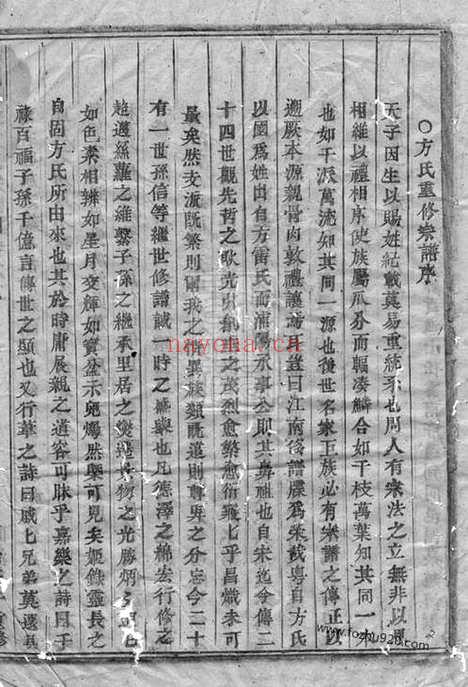 ○方氏重修宗譜序
天子因生以賜姓紀載莫易重統系也周人有宗法之立無非以恩
相維以禮相序使族屬瓜分而輻湊鱗合如千枝萬葉知其同一本
也如千派萬流如其同一源也後世名家王族必有宗譜之傳正以
遡厥本源親骨肉敦禮讓豈曰江南後譜牒為榮哉粵自方氏
以國為姓出自方雷氏而承事公則其鼻祖也自宋迄今傳二
十四世觀先哲之耿光之茂烈愈繁愈衍駸七乎昌熾未可
量矣然支派既繁則爾我之異族類既遠則尊卑之分忘今二十
有一世孫信等繼世修譜誠一時之盛舉也凡德澤之綿宏行修之
超邁絲蘿之維繫子孫之繼承里居之人物之光勝炳
如色素相辨如星月交輝如寶盆示兒燭然舉可見矣姬籙靈長之
自固方氏所由來也其於時庸展親之道容可昧乎嘉樂之詩曰干
祿百福子孫千億言傳世之顯也又行葦之詩曰戚七兄弟莫遠具
nayona.cn
www.fozhu920.com